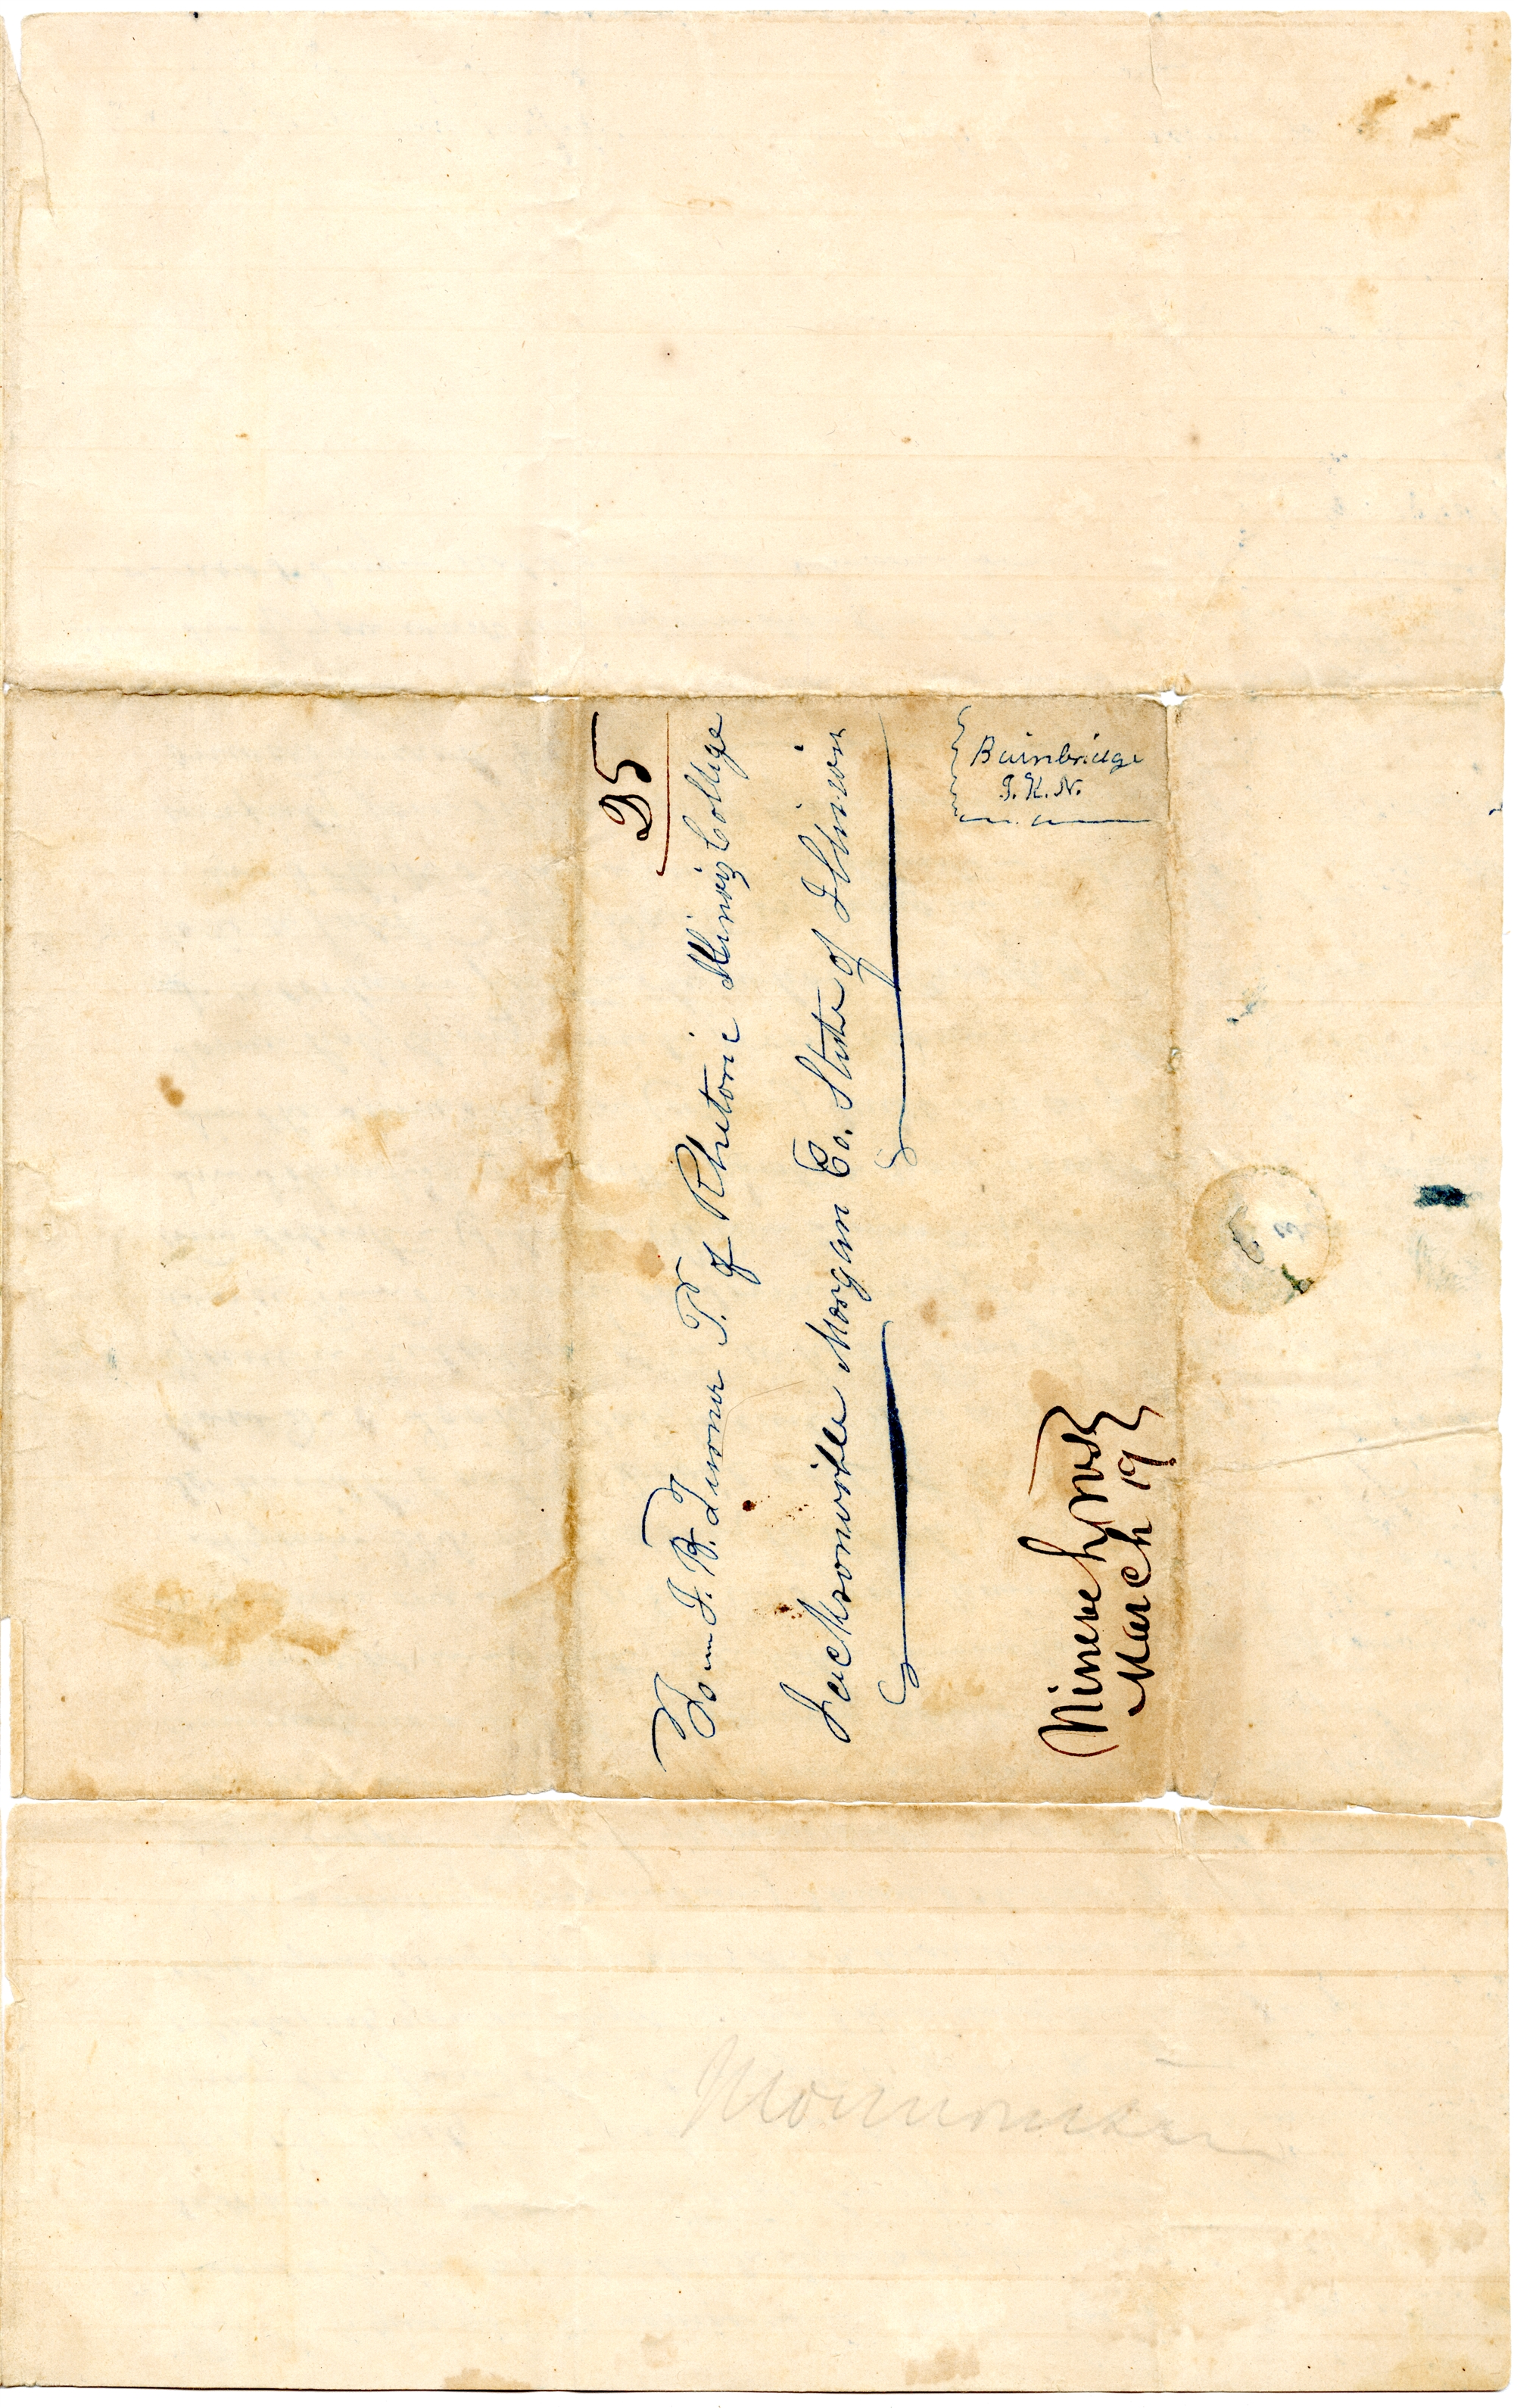 25
To J. B. Turner P. of Rhetoric Illinois College
Jacksonville Morgan Co. State of Illinois
Bainbridge
Nineveh NY
March 19